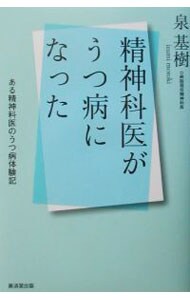 泉 基樹
izumi motoki
精神科医が
うつ病に
なった
ある精神科医のうつ病体験記
廣済堂出版